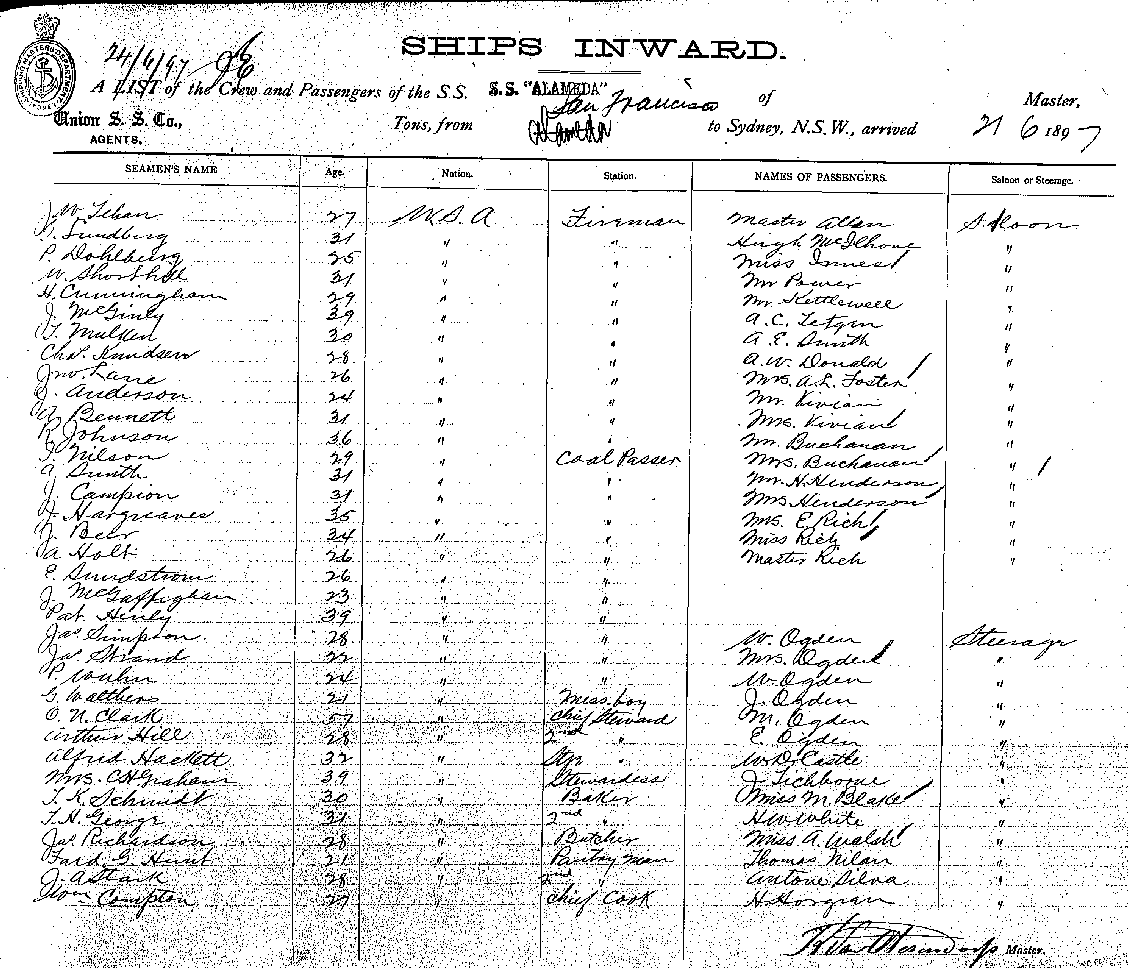 24/6/97
SHIPS INWARD.
A LIST of the Crew and Passengers of the S.S. S.S. "ALAMEDA" of Master,
Union S. S. Co., AGENTS. Tons, from San Francisco to Sydney, N.S.W., arrived 21 6 1897
Alameda
SEAMEN'S NAME Age. Nation. Station. NAMES OF PASSENGERS. Saloon or Steerage.
27 U.S.A Fireman Master Allan Saloon
Sundberg 31 " " Hugh McIlhone "
P. Dohlberg 25 " " Miss Innes "
W. Shorthill 31 " " Mr Power "
H. Cunningham 29 " " Mr. Kettlewell "
J. McGinly 39 " " A. C. "
30 " " A. E. Smith "
Chas. Knudsen 28 " " A. W. Donald "
Jno. Lane 26 " " Mrs. A. L. Foster "
J. Anderson 24 " " Mr. Vivian "
Bennett 31 " " Mrs. Vivian "
R. Johnson 36 " " Mr. Buchanan "
Nilson 29 " Coal Passer Mrs. Buchanan "
Smith 31 " " Mr. H. Henderson "
J. Campion 31 " " Mrs Henderson "
J. Hargreaves 35 " " Mrs. E. Rich "
J. Beer 34 " " Miss Rich "
A Holt 26 " " Master Rich "
E. Sundstrom 26 " "
J. McGaffighan 23 " "
Pat. Henly 39 " "
Jas Simpson 28 " " W. Ogden Steerage
Jas. Strand 22 " " Mrs. Ogden "
P. 24 " " W. Ogden "
G. Walthers 21 " Mess boy J. Ogden "
O. N. Clark 57 " Chief Steward M. Ogden "
Arthur Hill 28 " 2nd " E. Ogden "
Alfred Hackett 32 " " W. D. Castle "
Mrs. C H Graham 39 " Stewardess J. Tichborne "
T. K. Schmidt 30 " Baker Miss M. Blake "
T. H. George 31 " 2nd " H W White "
Jas Richardson 28 " Butcher Miss A. Walsh "
G. Hurst 21 " Pantry man Thomas "
J. A Stark 28 " 2nd " Antone Silva "
Wm Compton 27 " Chief Cook H. "
Master.